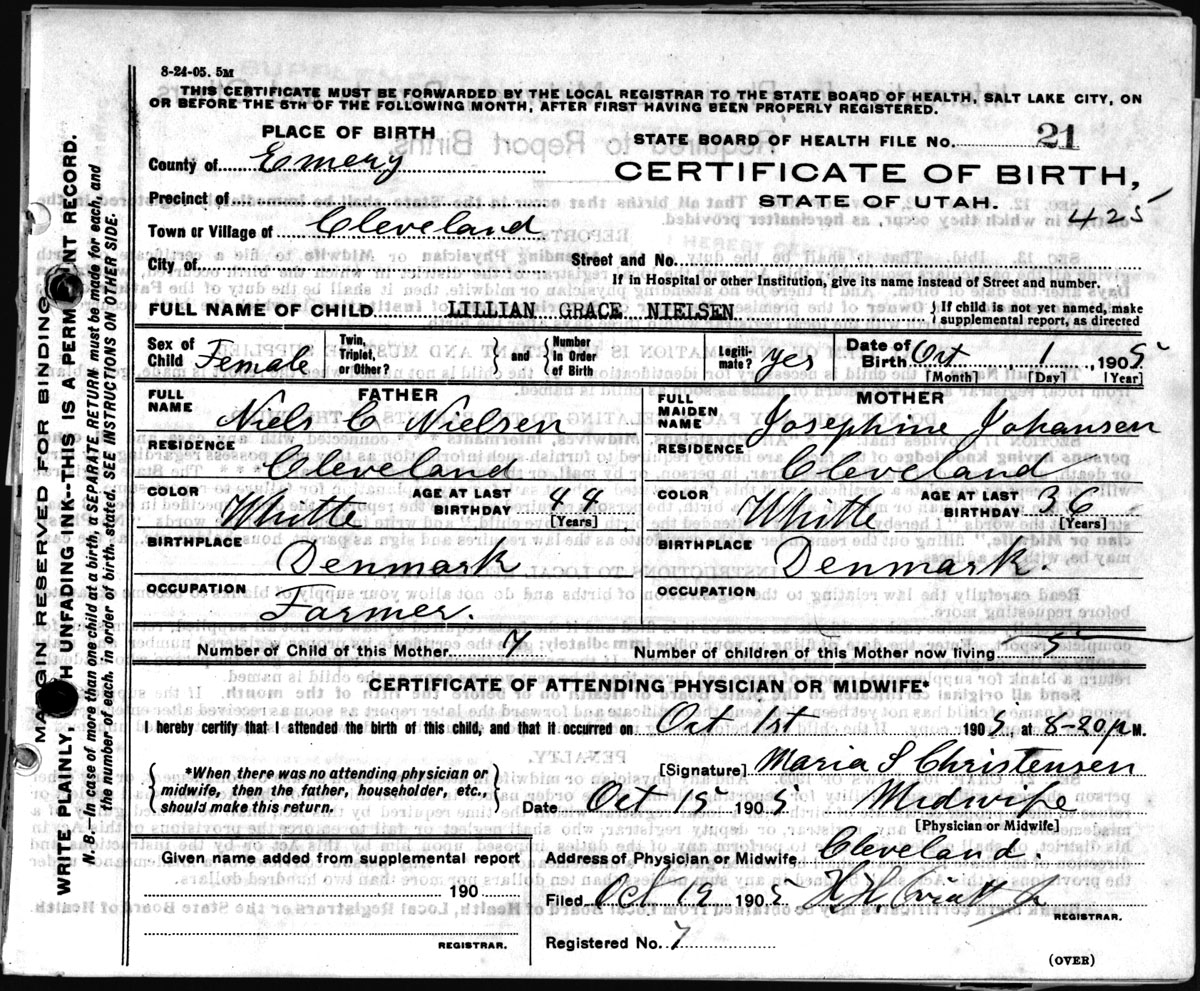 8-24-05. 5M
THIS CERTIFICATE MUST BE FORWARDED BY THE LOCAL REGISTRAR TO THE STATE BOARD OF HEALTH, SALT LAKE CITY, ON
OR BEFORE THE 5TH OF THE FOLLOWING MONTH, AFTER FIRST HAVING BEEN PROPERLY REGISTERED.
PLACE OF BIRTH
STATE BOARD OF HEALTH FILE No. 21
County of Emery
CERTIFICATE OF BIRTH,
Precinct of
STATE OF UTAH.
425
Town or Village of Cleveland
City of
Street and No.
If in Hospital or other Institution, give its name instead of Street and number.
FULL NAME OF CHILD LILLIAN GRACE NIELSEN
If child is not yet named, make
supplemental report, as directed
Sex of Child Female
Twin, Triplet, or Other?
and
Number In Order of Birth
Legiti- mate? yes
Date of Birth Oct 1 1905
[Month] [Day] [Year]
FATHER
FULL NAME Niels C Nielsen
RESIDENCE Cleveland
COLOR White
AGE AT LAST BIRTHDAY 44
[Years]
BIRTHPLACE Denmark
OCCUPATION Farmer.
MOTHER
FULL MAIDEN NAME Josephine Johansen
RESIDENCE Cleveland
COLOR White
AGE AT LAST BIRTHDAY 36
[Years]
BIRTHPLACE Denmark.
OCCUPATION
Number of Child of this Mother 7
Number of children of this Mother now living 5
CERTIFICATE OF ATTENDING PHYSICIAN OR MIDWIFE*
I hereby certify that I attended the birth of this child, and that it occurred on Oct 1st 1905, at 8-20 p M.
*When there was no attending physician or
midwife, then the father, householder, etc.,
should make this return.
[Signature] Maria S Christensen
Date Oct 15 1905 Midwife
[Physician or Midwife]
Given name added from supplemental report
190
REGISTRAR.
Address of Physician or Midwife Cleveland.
Filed Oct 19 1905 H.H.
REGISTRAR.
Registered No. 7
(OVER)
MARGIN RESERVED FOR BINDING
WRITE PLAINLY, WITH UNFADING INK--THIS IS A PERMANENT RECORD.
N. B.--In case of more than one child at a birth, a SEPARATE RETURN must be made for each, and
the number of each, in order of birth, stated. SEE INSTRUCTIONS ON OTHER SIDE.